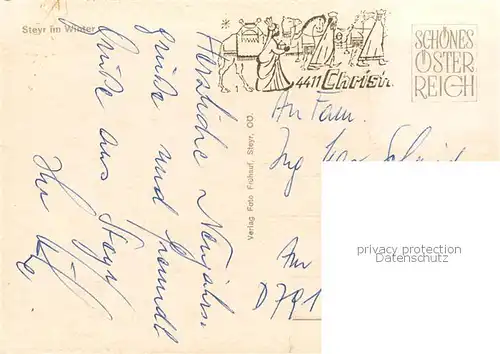 Steyr im Winter
4411 Christk
SCHÖNES
ÖSTER
REICH
Herzliche Neujahrs-
grüße und freundl
Grüße aus Steyr
Ihr
Verlag Foto Frühauf, Steyr, OÖ.
An Fam.
Ing
D 791
privacy protection
Datenschutz